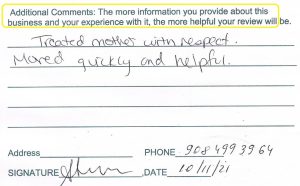 Additional Comments: The more information you provide about this
business and your experience with it, the more helpful your review will be.
Treated mother with respect.
Moved quickly and helpful.
Address PHONE 908 499 3964
SIGNATURE DATE 10/11/21